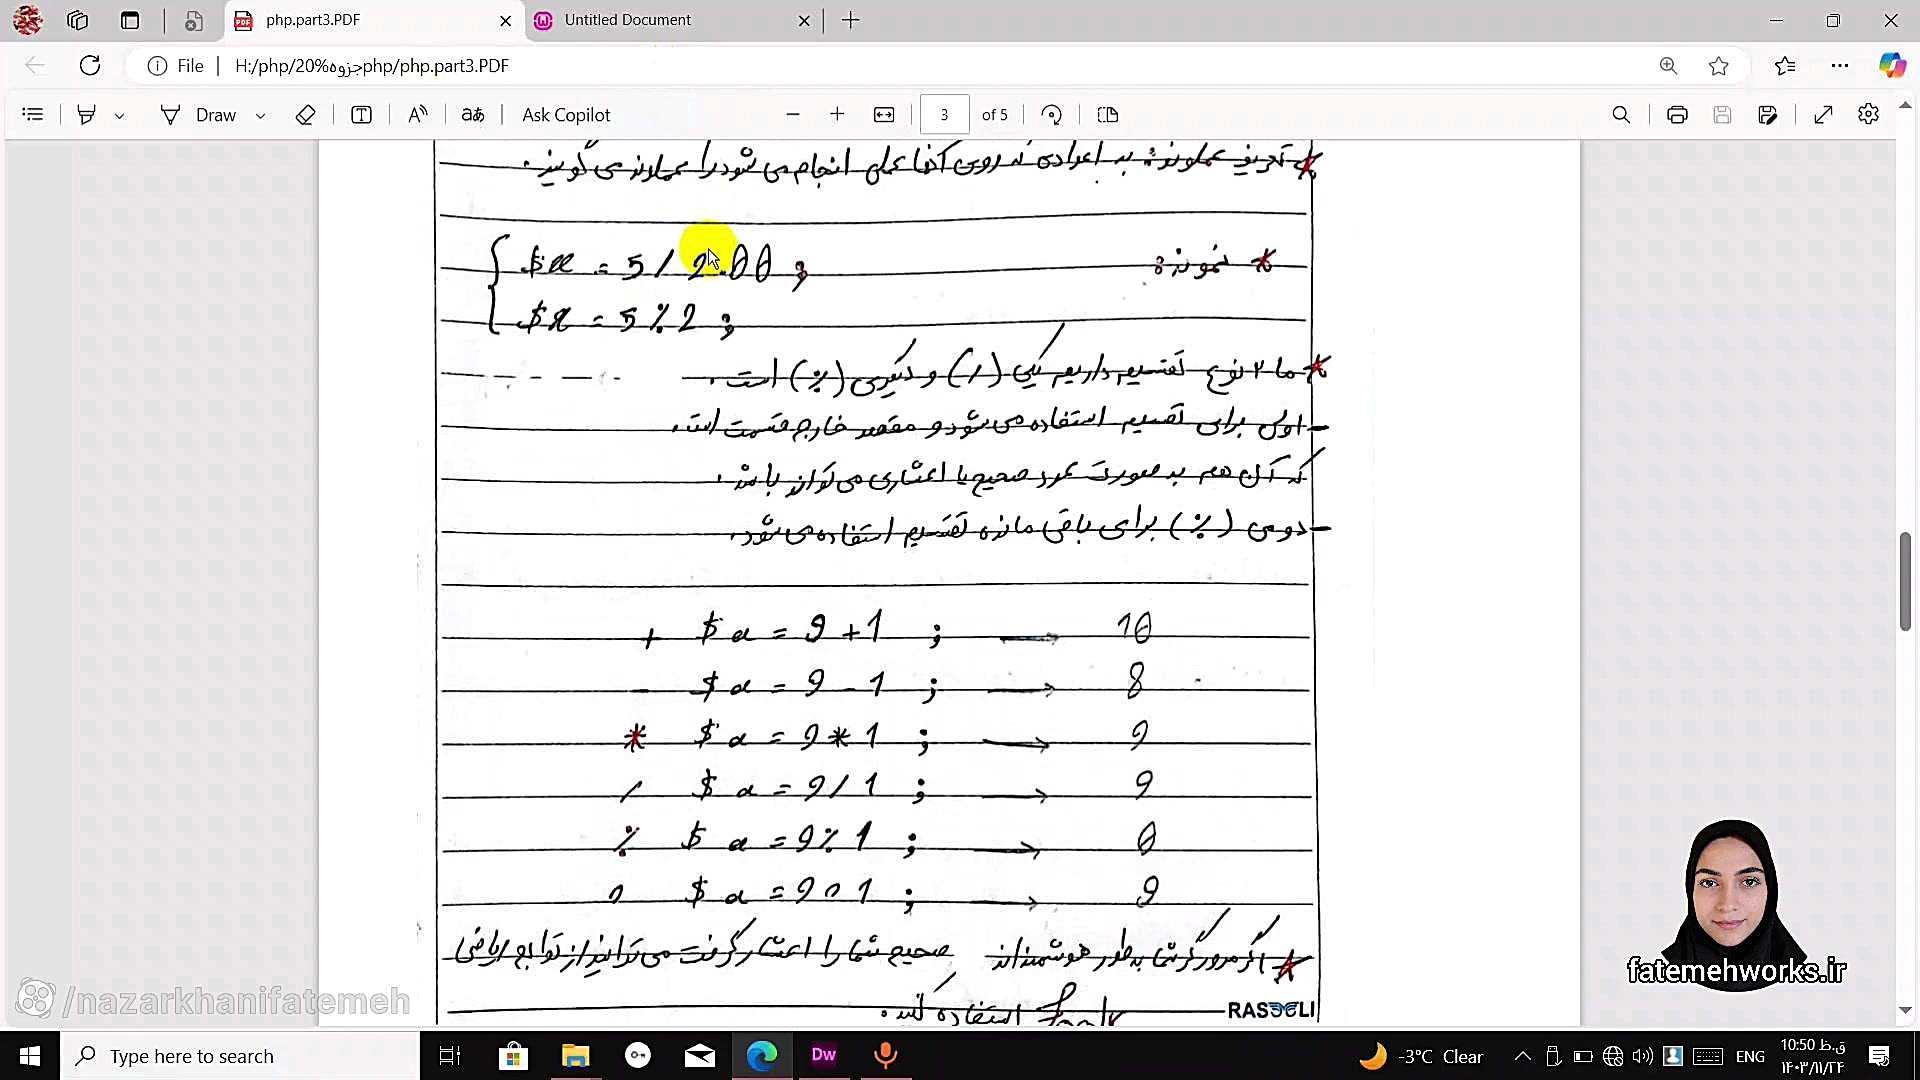 php.part3.PDF
Untitled Document
File
H:/php/20%جزوهphp/php.part3.PDF
Draw
Ask Copilot
3 of 5
* تعریف عملوند: به اعدادی که روی آنها عملی انجام می شود را عملوند می گویند.
* نمونه:
$x = 5 / 2.00 ;
$x = 5 % 2 ;
* ما ۲ نوع تقسیم داریم یکی (/) و دیگری (%) است.
- اولی برای تقسیم استفاده می شود و مقصد خارج قسمت است.
که آن هم به صورت عدد صحیح یا اعشاری می تواند باشد.
- دومی (%) برای باقی مانده تقسیم استفاده می شود.
+ $a = 9 + 1 ; → 10
- $a = 9 - 1 ; → 8
* $a = 9 * 1 ; → 9
/ $a = 9 / 1 ; → 9
% $a = 9 % 1 ; → 0
^ $a = 9 ^ 1 ; → 9
* اگر مرورگر شما به طور هوشمندانه صحیح شما را اعشار گرفت می توانید از توابع ریاضی
استفاده کنید.
RASOOLI
fatemehworks.ir
/nazarkhanifatemeh
Type here to search
Dw
-3°C Clear
ENG
10:50 ق.ظ
۱۴۰۳/۱۱/۲۴